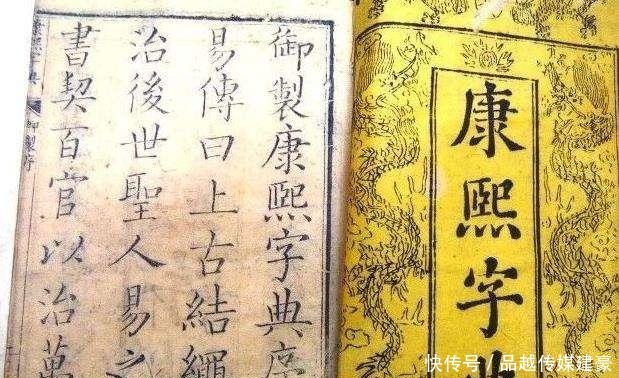 康熙字
御製康熙字典序
易傳曰上古結繩
治後世聖人易之
書契百官以治萬
康熙字典
御製序
快传号/品越传媒建豪